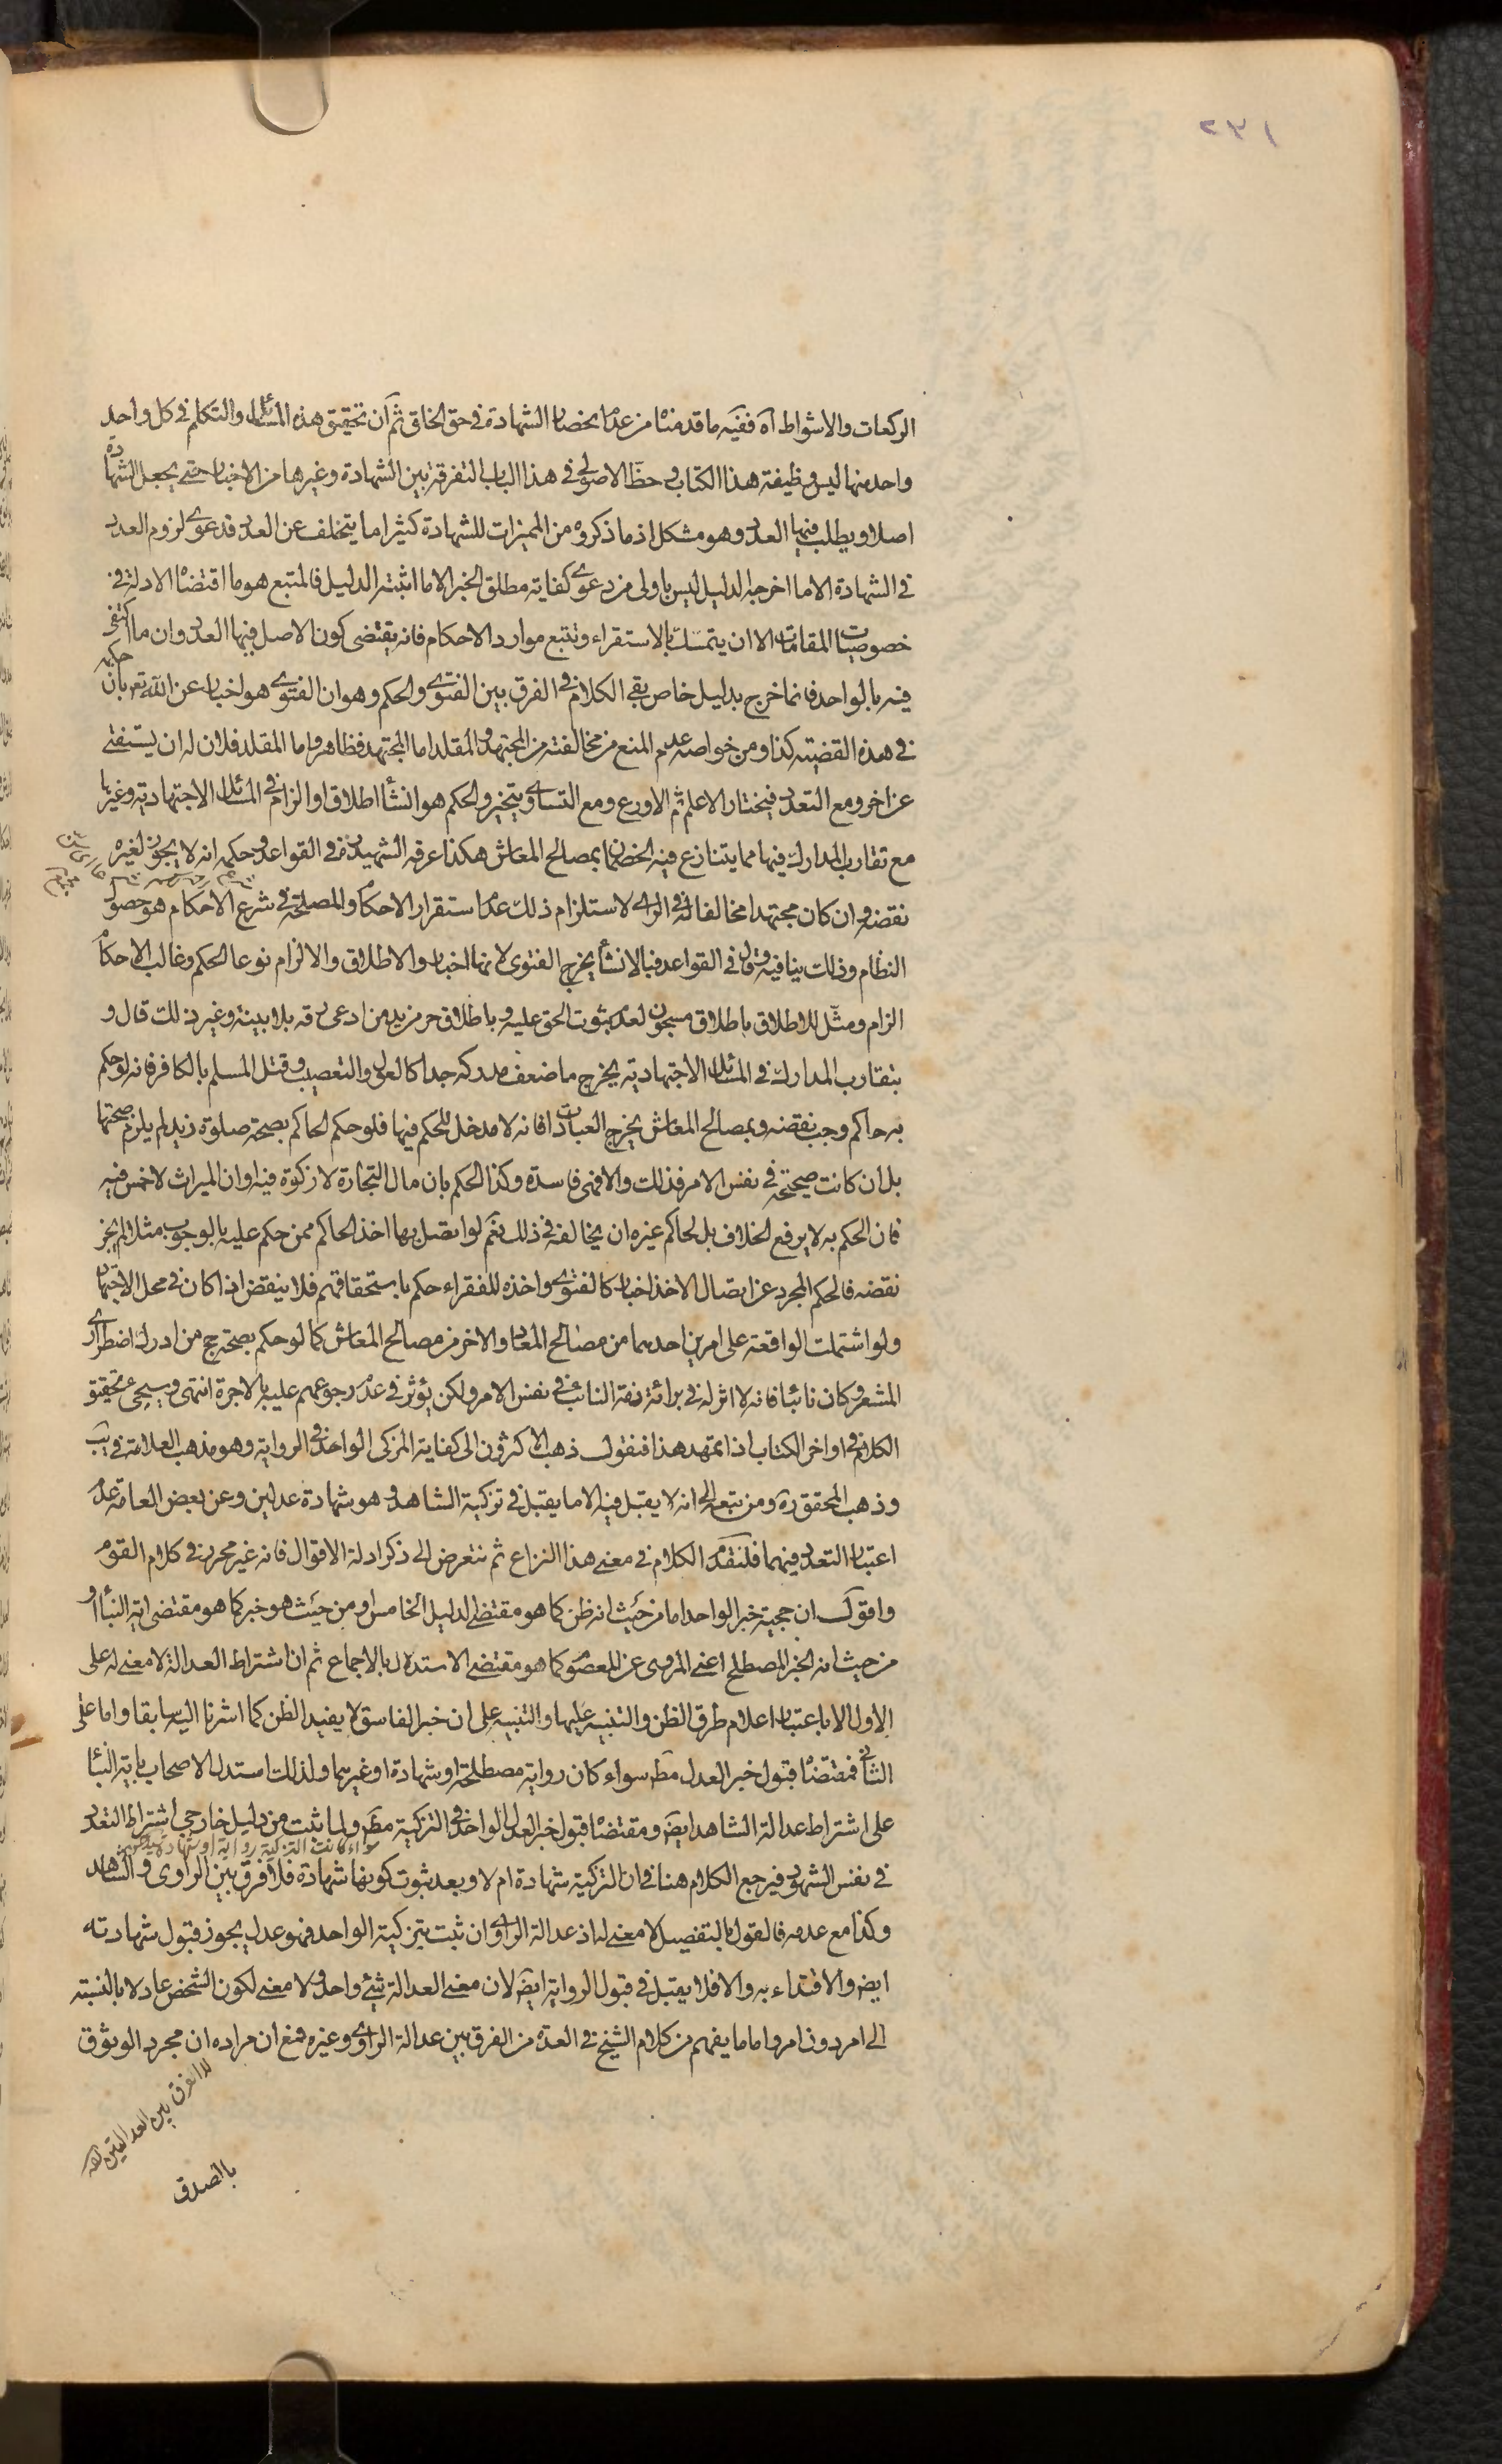 ٢٣١
الركعات والاشواط آه ففيه ما قدمنا من عدم انحصار الشهادة في حق الخلق ثم ان تحقيق هذه المسائل والتكلم في كل واحد
واحد منها ليس وظيفة هذا الكتاب و حظ الاصولي في هذا الباب التفرقة بين الشهادة وغيرها من الاخبار حتى يجعل الشهادة
اصلا ويطلب فيها العدد وهو مشكل اذ ما ذكروه من المميزات للشهادة كثيرا ما يتخلف عن العدد فدعوى لزوم العدد
في الشهادة الا ما اخرجه الدليل ليس باولى من دعوى كفاية مطلق الخبر الا ما اثبته الدليل فالمتبع هو ما اقتضاه الادلة في
خصوصيات المقامات الا ان يتمسك بالاستقراء وتتبع موارد الاحكام فانه يقتضى كون الاصل فيها العدد وان ما اكتفى
فيه بالواحد فانما خرج بدليل خاص بقي الكلام في الفرق بين الفتوى والحكم وهو ان الفتوى هو اخبار عن الله تعم بان حكمه
في هذه القضية كذا ومن خواصه عدم المنع من مخالفته من المجتهد والمقلد اما المجتهد فظاهر واما المقلد فلان له ان يستفتى
عن اخر ومع التعدد فيختار الاعلم ثم الاورع ومع التساوى يتخير والحكم هو انشاء اطلاق او الزام في المسائل الاجتهادية وغيرها
مع تقارب المدارك فيها مما يتنازع فيه الخصمان بمصالح المعاش هكذا عرفه الشهيد ره في القواعد وحكمه انه لا يجوز لغيره
نقضه وان كان مجتهدا مخالفا له في الراى لاستلزام ذلك عدم استقرار الاحكام والمصلحة في شرع الاحكام هو حصول
النظام وذلك ينافيه وقال في القواعد فبالانشاء يخرج الفتوى لانها اخبار والاطلاق والالزام نوعا الحكم وغالب الاحكام
الزام ومثل للاطلاق باطلاق مسجون لعدم ثبوت الحق عليه وباطلاق حر من يد من ادعى رقه بلا بينة وغير ذلك قال و
بتقارب المدارك في المسائل الاجتهادية يخرج ما ضعف مدركه جدا كالعول والتعصيب وقتل المسلم بالكافر فانه لو حكم
به حاكم وجب نقضه وبمصالح المعاش يخرج العبادات فانه لا مدخل للحكم فيها فلو حكم الحاكم بصحة صلوة زيد لم يلزم صحتها
بل ان كانت صحيحة في نفس الامر فذلك والا فهى فاسدة وكذا الحكم بان مال التجارة لا زكوة فيه وان الميراث لا خمس فيه
فان الحكم به لا يرفع الخلاف بل لحاكم غيره ان يخالفه في ذلك نعم لو اتصل بها اخذ الحاكم ممن حكم عليه بالوجوب مثلا لم يجز
نقضه فالحكم المجرد عن اتصال الاخذ اخبار كالفتوى واخذه للفقراء حكم باستحقاقهم فلا ينقض اذا كان في محل الاجتهاد
ولو اشتملت الواقعة على امرين احدهما من مصالح المعاد والاخر من مصالح المعاش كما لو حكم بصحة حج من ادرك اضطرارى
المشعر وكان نائبا فانه لا اثر له في برائة ذمة النائب في نفس الامر ولكن يؤثر في عدم رجوعهم عليه بالاجرة انتهى وسيجئ تحقيق
الكلام في اواخر الكتاب اذا تمهد هذا فنقول ذهب الاكثرون الى كفاية المزكى الواحد في الرواية وهو مذهب العلامة في يب
وذهب المحقق ره ومن تبعه الى انه لا يقبل فيه الا ما يقبل في تزكية الشاهد وهو شهادة عدلين وعن بعض العامة عدم
اعتبار التعدد فيهما فلنقدم الكلام في معنى هذا النزاع ثم نتعرض الى ذكر ادلة الاقوال فانه غير محرر في كلام القوم
واقول ان حجية خبر الواحد اما من حيث انه ظن كما هو مقتضى الدليل الخامس او من حيث هو خبر كما هو مقتضى اية النبأ او
من حيث انه الخبر المصطلح اعنى المروى عن المعصوم كما هو مقتضى الاستدلال بالاجماع ثم ان اشتراط العدالة لا معنى له على
الاول الا باعتبار اعلام طرق الظن والتنبيه عليها والتنبيه على ان خبر الفاسق لا يفيد الظن كما اشرنا اليه سابقا واما على
الثانى فمقتضاه قبول خبر العدل مط سواء كان رواية مصطلحة او شهادة او غيرهما ولذلك استدل الاصحاب باية النبأ
على اشتراط عدالة الشاهد ايض ومقتضاه قبول خبر العدل الواحد في التزكية مط ولما ثبت من دليل خارجي اشتراط التعدد
سواء كانت التزكية رواية او شهادة
في نفس الشهود فيرجع الكلام هنا في ان التزكية شهادة ام لا وبعد ثبوت كونها شهادة فلا فرق بين الراوى والشاهد
وكذا مع عدمه فالقول بالتفصيل لا معنى له اذ عدالة الراوى ان ثبت بتزكية الواحد فهو عدل يجوز قبول شهادته
ايض والاقتداء به والا فلا يقبل في قبول الرواية ايض لان معنى العدالة شئ واحد ولا معنى لكون الشخص عادلا بالنسبة
الى امر دون امر واما ما يفهم من كلام الشيخ في العدة من الفرق بين عدالة الراوى وغيره فمع ان مراده ان مجرد الوثوق
لا الفرق بين العدالتين
بالصدق